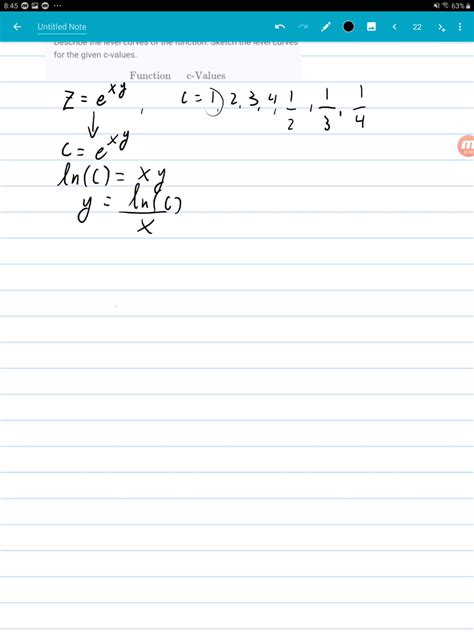 8:45 63%
Untitled Note 22
Describe the level curves of the function. Sketch the level curves
for the given c-values.
Function c-Values
z = e^xy, c = 1, 2, 3, 4, 1/2, 1/3, 1/4
c = e^xy
ln(c) = xy
y = ln(c)/x